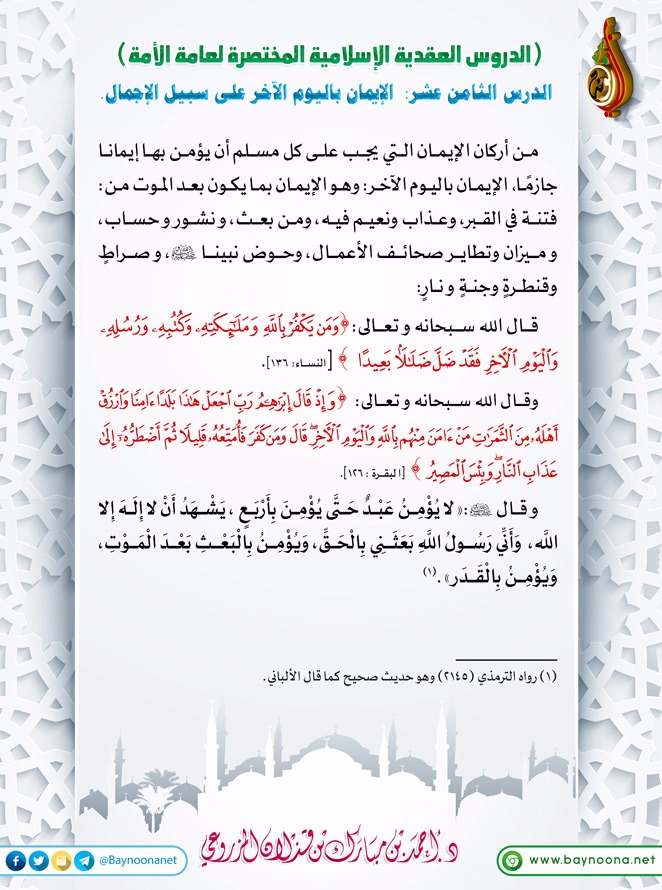 ( الدروس العقدية الإسلامية المختصرة لعامة الأمة )
الدرس الثامن عشر: الإيمان باليوم الآخر على سبيل الإجمال.
من أركان الإيمان التي يجب على كل مسلم أن يؤمن بها إيمانا
جازمًا، الإيمان باليوم الآخر: وهو الإيمان بما يكون بعد الموت من:
فتنة في القبر، وعذاب ونعيم فيه، ومن بعث، ونشور وحساب،
وميزان وتطاير صحائف الأعمال، وحوض نبينا ﷺ، وصراطٍ
وقنطرةٍ وجنةٍ ونارٍ:
قال الله سبحانه وتعالى: ﴿وَمَن يَكْفُرْ بِٱللَّهِ وَمَلَٰٓئِكَتِهِۦ وَكُتُبِهِۦ وَرُسُلِهِۦ
وَٱلْيَوْمِ ٱلْءَاخِرِ فَقَدْ ضَلَّ ضَلَٰلًۢا بَعِيدًا ﴾ [النساء: ١٣٦].
وقال الله سبحانه وتعالى: ﴿وَإِذْ قَالَ إِبْرَٰهِـۧمُ رَبِّ ٱجْعَلْ هَٰذَا بَلَدًا ءَامِنًا وَٱرْزُقْ
أَهْلَهُۥ مِنَ ٱلثَّمَرَٰتِ مَنْ ءَامَنَ مِنْهُم بِٱللَّهِ وَٱلْيَوْمِ ٱلْءَاخِرِ ۖ قَالَ وَمَن كَفَرَ فَأُمَتِّعُهُۥ قَلِيلًا ثُمَّ أَضْطَرُّهُۥٓ إِلَىٰ
عَذَابِ ٱلنَّارِ ۖ وَبِئْسَ ٱلْمَصِيرُ ﴾ [البقرة: ١٢٦].
وقال ﷺ: «لا يُؤْمِنُ عَبْدٌ حَتَّى يُؤْمِنَ بِأَرْبَعٍ، يَشْهَدُ أَنْ لا إِلَهَ إِلا
الله، وَأَنِّي رَسُولُ اللَّهِ بَعَثَنِي بِالْحَقِّ، وَيُؤْمِنُ بِالْبَعْثِ بَعْدَ الْمَوْتِ،
وَيُؤْمِنُ بِالْقَدَرِ». (١)
(١) رواه الترمذي (٢١٤٥) وهو حديث صحيح كما قال الألباني.
د. أحمد بن مبارك بن قذلان المزروعي
@Baynoonanet
www.baynoona.net